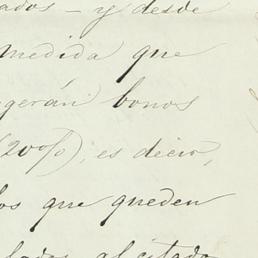 ados – y desde
medida que
gerán bonos
(20%), es decir,
los que queden
lados al citado